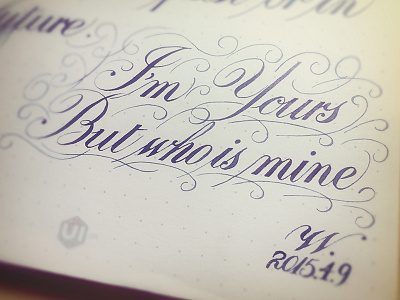 or in
future.
I'm Yours
But who is mine
W.
2015.4.9
UI